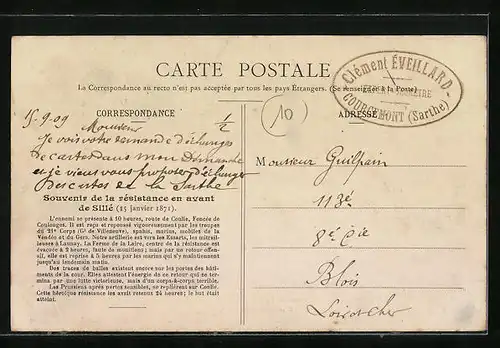 CARTE POSTALE
La Correspondance au recto n'est pas acceptée par tous les pays Étrangers. (Se renseigner à la Poste)
CORRESPONDANCE
ADRESSE
Clément ÉVEILLARD
COURCEMONT (Sarthe)
10
15-9-09
1/2
Monsieur
Je vois votre demande d'échange
de cartes dans mon Démanche
et je viens vous proposer d'échanger
Des cartes de la Sarthe
Souvenir de la résistance en avant
de Sillé (15 janvier 1871).
L'ennemi se présente à 10 heures, route de Conlie, Fences de
Coulonges. Il est reçu et repoussé vigoureusement par les troupes
du 21e Corps (Gl de Villeneuve), spahis, marins, mobiles de la
Vendée et du Gers. Notre artillerie est vers les Sizeris, les mitrail-
leuses à Launay. La Ferme de la Laire, centre de la résistance est
évacuée à 2 heures, faute de munitions; mais par un retour offen-
sif, elle est reprise à 5 heures par les marins qui s'y maintiennent
jusqu'au lendemain matin.
Des traces de balles existent encore sur les portes des bâti-
ments de la cour. Elles attestent l'énergie de ce retour qui se ter-
mina par une lutte victorieuse, mais d'un corps-à-corps terrible.
Les Prussiens après pertes sensibles, se replièrent sur Conlie.
Cette héroïque résistance les avait retenus 24 heures; le but était
atteint.
Monsieur Guilpain
113e
8e Cie
Blois
Loir et cher